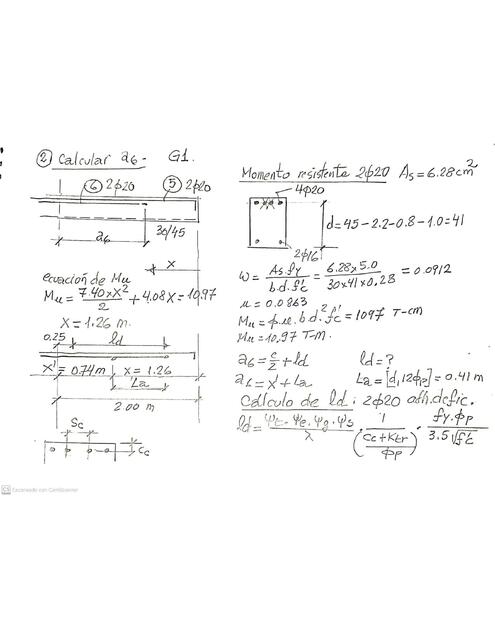 ② Calcular a6- G1.
⑥ 2ϕ20 ⑤ 2ϕ20
a6 30/45
x
ecuación de Mu
Mu = 7.40×X²/2 + 4.08X = 10.97
X = 1.26 m.
0.25 ld
X' = 0.74m x = 1.26
La
2.00 m
Sc
Cc
Momento resistente 2ϕ20 As = 6.28cm²
4ϕ20
d = 45 - 2.2 - 0.8 - 1.0 = 41
2ϕ16
W = As fy / b.d.f'c = 6.28×5.0 / 30×41×0.28 = 0.0912
u = 0.0863
Mu = φ.u.b.d².f'c = 1097 T-cm
Mu = 10.97 T-m.
a6 = c/2 + ld ld = ?
a6 = X' + La La = [d, 12ϕp] = 0.41 m
Cálculo de ld: 2ϕ20
ld = ψt.ψe.ψg.ψs / λ . 1 / (Cc + Ktr / ϕp) . fy.ϕp / 3.5√f'c
CS Escaneado con CamScanner